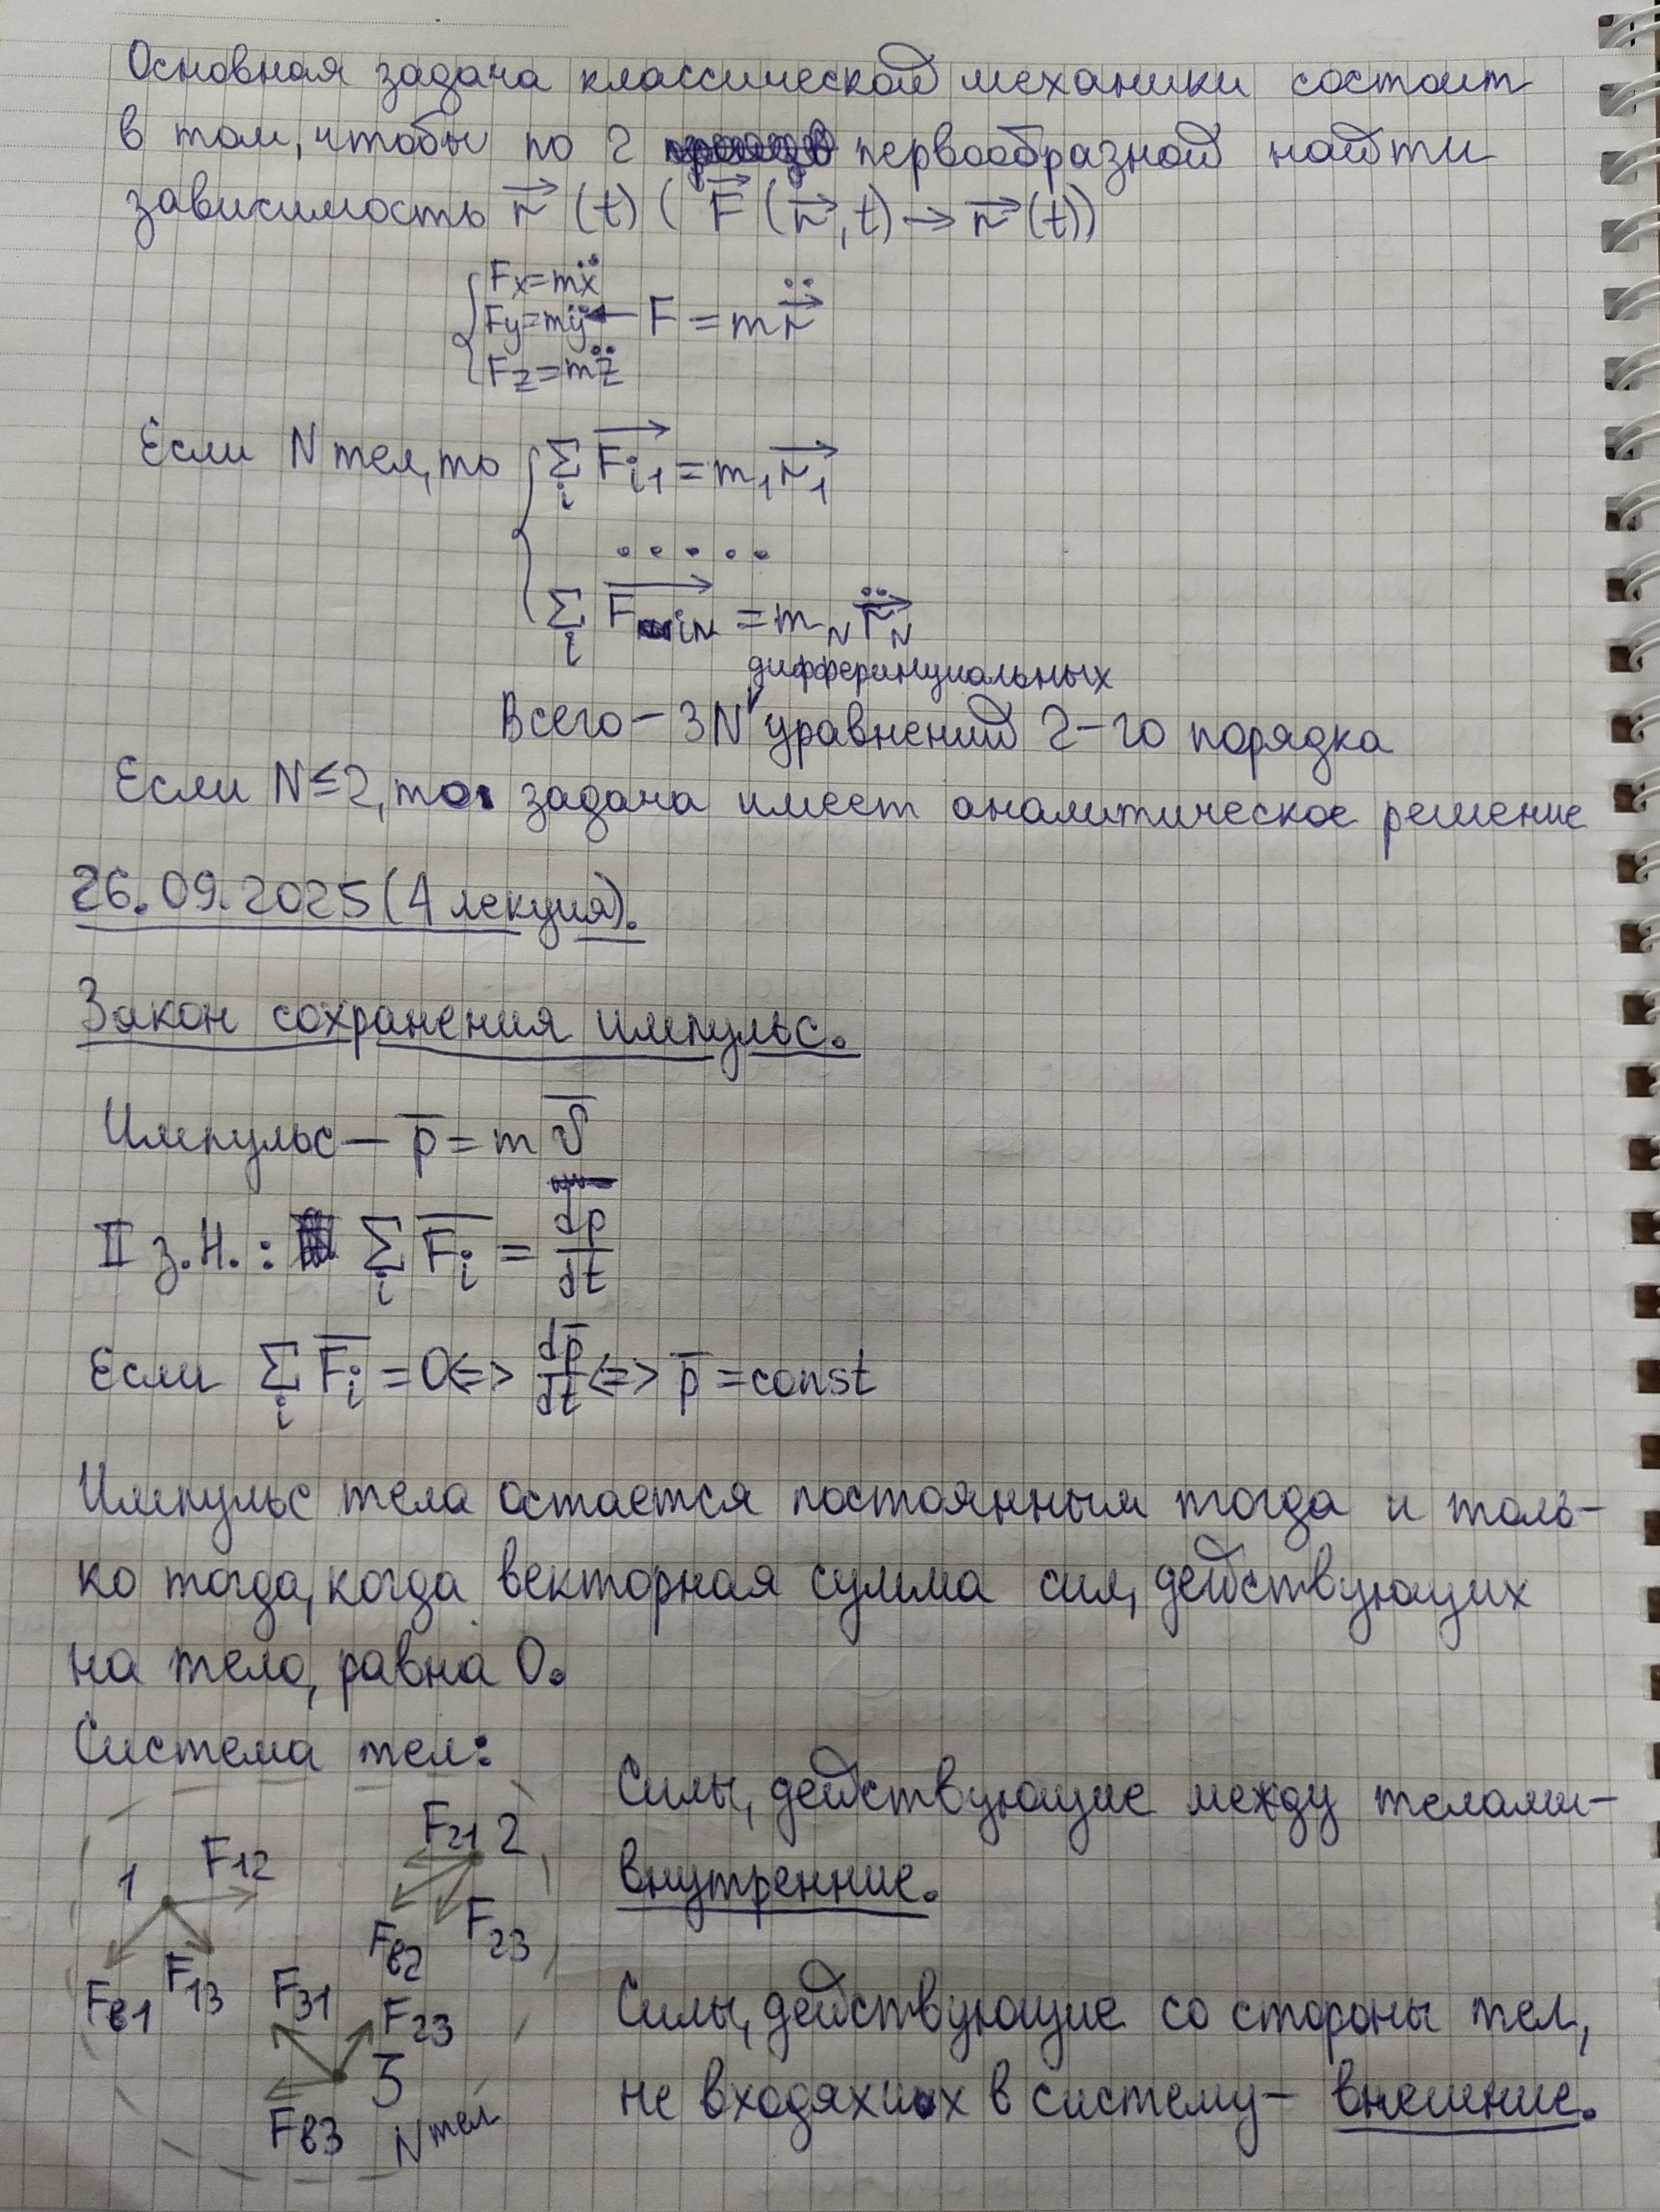 Основная задача классической механики состоит
в том, чтобы по 2 первообразной найти
зависимость r⃗ (t) ( F⃗ (r⃗, t) → r⃗ (t))
Fx = mẍ
Fy = mÿ ← F = m r⃗̈
Fz = mz̈
Если N тел, то Σi F⃗i1 = m1 r⃗1
. . . . .
Σi F⃗iN = mN r⃗̈N
дифферинциальных
Всего – 3N уравнений 2-го порядка
Если N ≤ 2, то задача имеет аналитическое решение
26.09.2025 (4 лекция).
Закон сохранения импульс.
Импульс — p̅ = m v̅
II з.Н.: Σi F̅i = dp/dt
Если Σi F̅i = 0 <=> dp̅/dt <=> p̅ = const
Импульс тела остается постоянным тогда и толь-
ко тогда, когда векторная сумма сил, действующих
на тело, равна 0.
Система тел:
1 F12 Fв1 F13
F21 2 Fв2 F23
F31 F23 3 Fв3
N тел
Силы, действующие между телами –
внутренние.
Силы, действующие со стороны тел,
не входяхиих в систему – внешние.